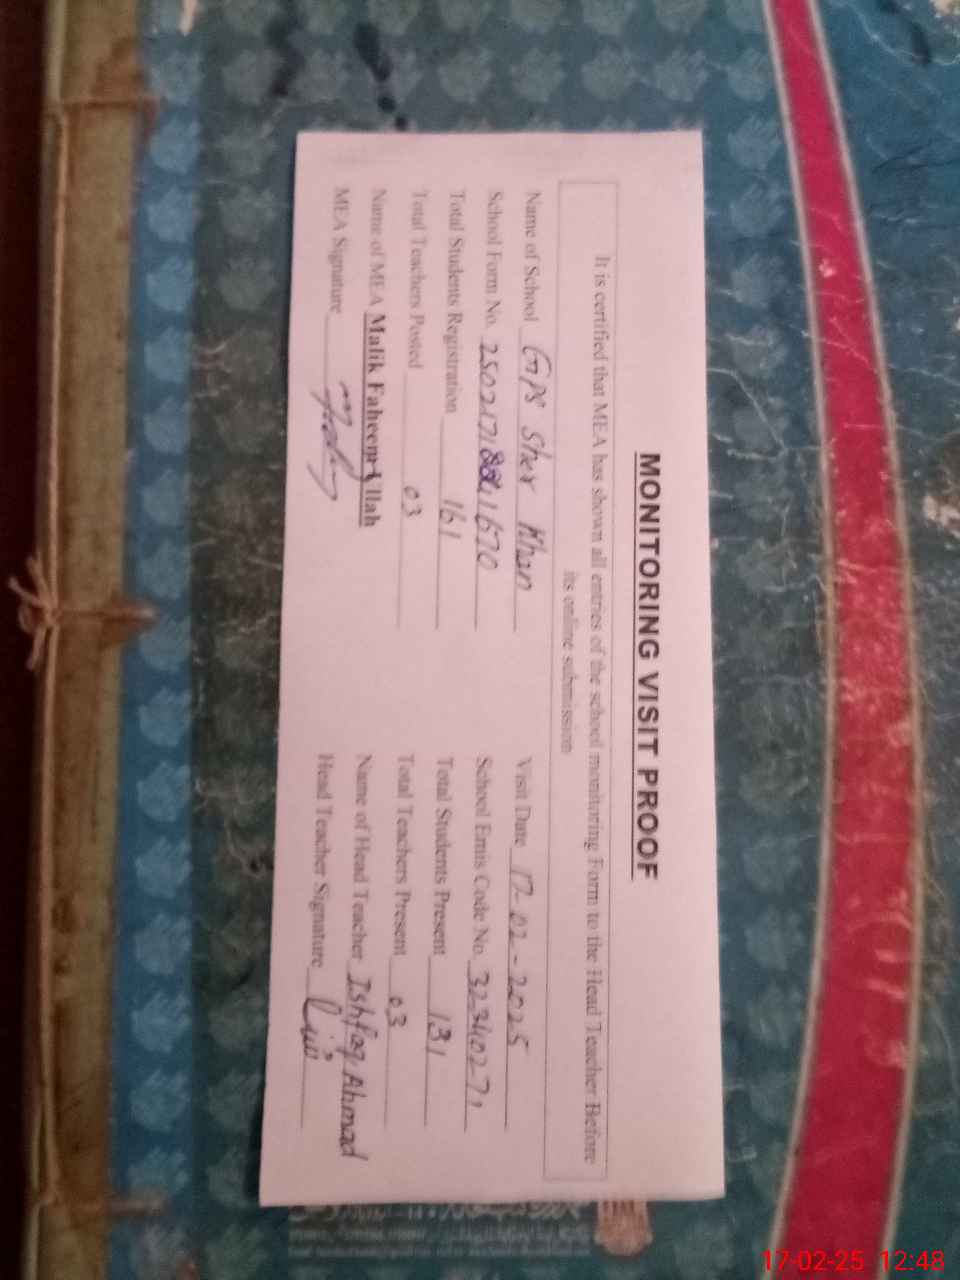 MONITORING VISIT PROOF
It is certified that MEA has shown all entries of the school monitoring Form to the Head Teacher Before
its online submission
Name of School GPS Sher Khan Visit Date 17-02-2025
School Form No. School Emis Code No. 32340271
Total Students Registration 161 Total Students Present 131
Total Teachers Posted 03 Total Teachers Present 03
Name of MEA Malik Faheem Ullah Name of Head Teacher Ishfaq Ahmad
MEA Signature Head Teacher Signature
17-02-25 12:48